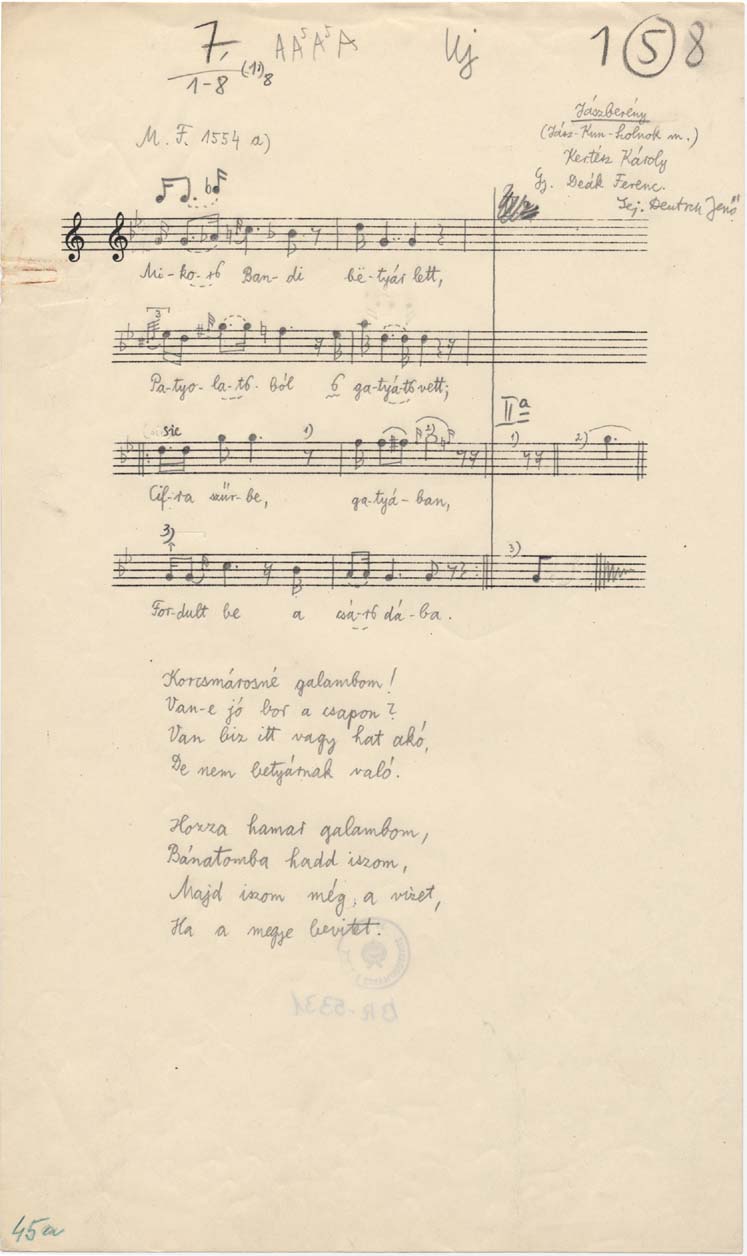 7. AA⁵A⁵A Uj 1 5 8
1-8
M. F. 1554 a)
Jászberény
(Jász-Kun-Szolnok m.)
Kertész Károly
Gy. Deák Ferenc.
Lej. Deutsch Jenő
Mi-ko-ró Ban-di bë-tyár lett,
Pa-tyo-la-tó-ból 6 ga-tyá-tó vett;
IIª
sic 1) 2) 1) 2)
Cif-ra szűr-be, ga-tyá-ban,
3) 3)
For-dult be a csá-ró dá-ba.
Korcsmárosné galambom!
Van-e jó bor a csapon?
Van biz itt vagy hat akó,
De nem betyárnak való.
Hozza hamar galambom,
Bánatomba hadd iszom,
Majd iszom még a vizet,
Ha a megye bevitet.
BR-5331
45a